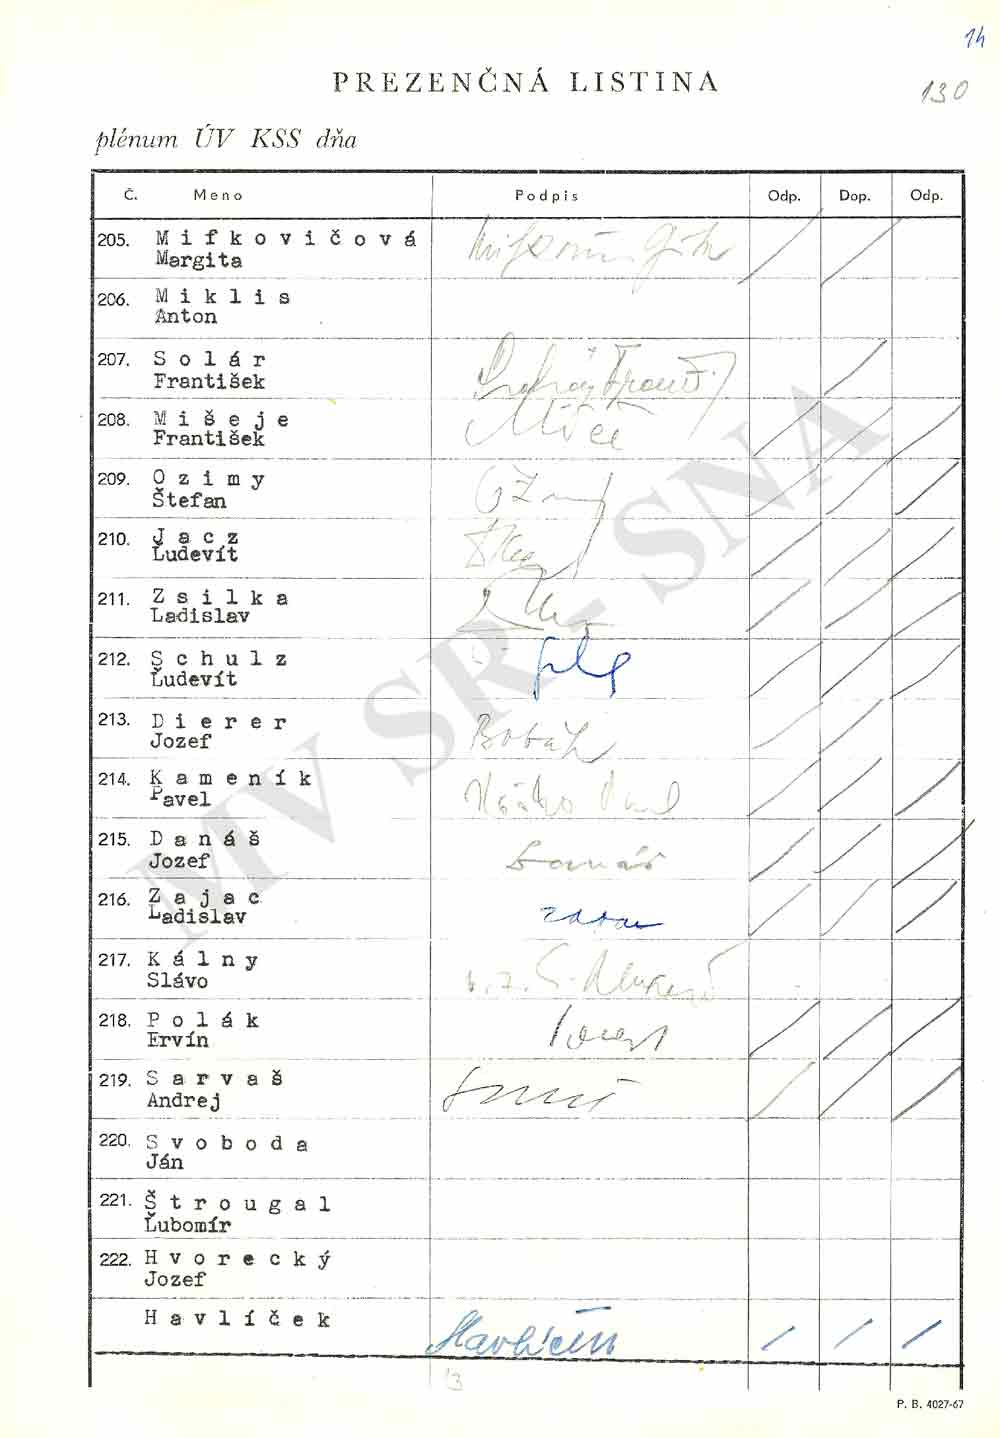 14
130
PREZENČNÁ LISTINA
plénum ÚV KSS dňa
Č. Meno Podpis Odp. Dop. Odp.
205. Mifkovičová
Margita
206. Miklis
Anton
207. Solár
František
208. Mišeje
František
209. Ozimy
Štefan
210. Jacz
Ľudevít
211. Zsilka
Ladislav
212. Schulz
Ľudevít
213. Dierer
Jozef
214. Kameník
Pavel
215. Danáš
Jozef
216. Zajac
Ladislav
217. Kálny
Slávo
218. Polák
Ervín
219. Sarvaš
Andrej
220. Svoboda
Ján
221. Štrougal
Ľubomír
222. Hvorecký
Jozef
Havlíček
13
P. B. 4027-67
MV SR - SNA